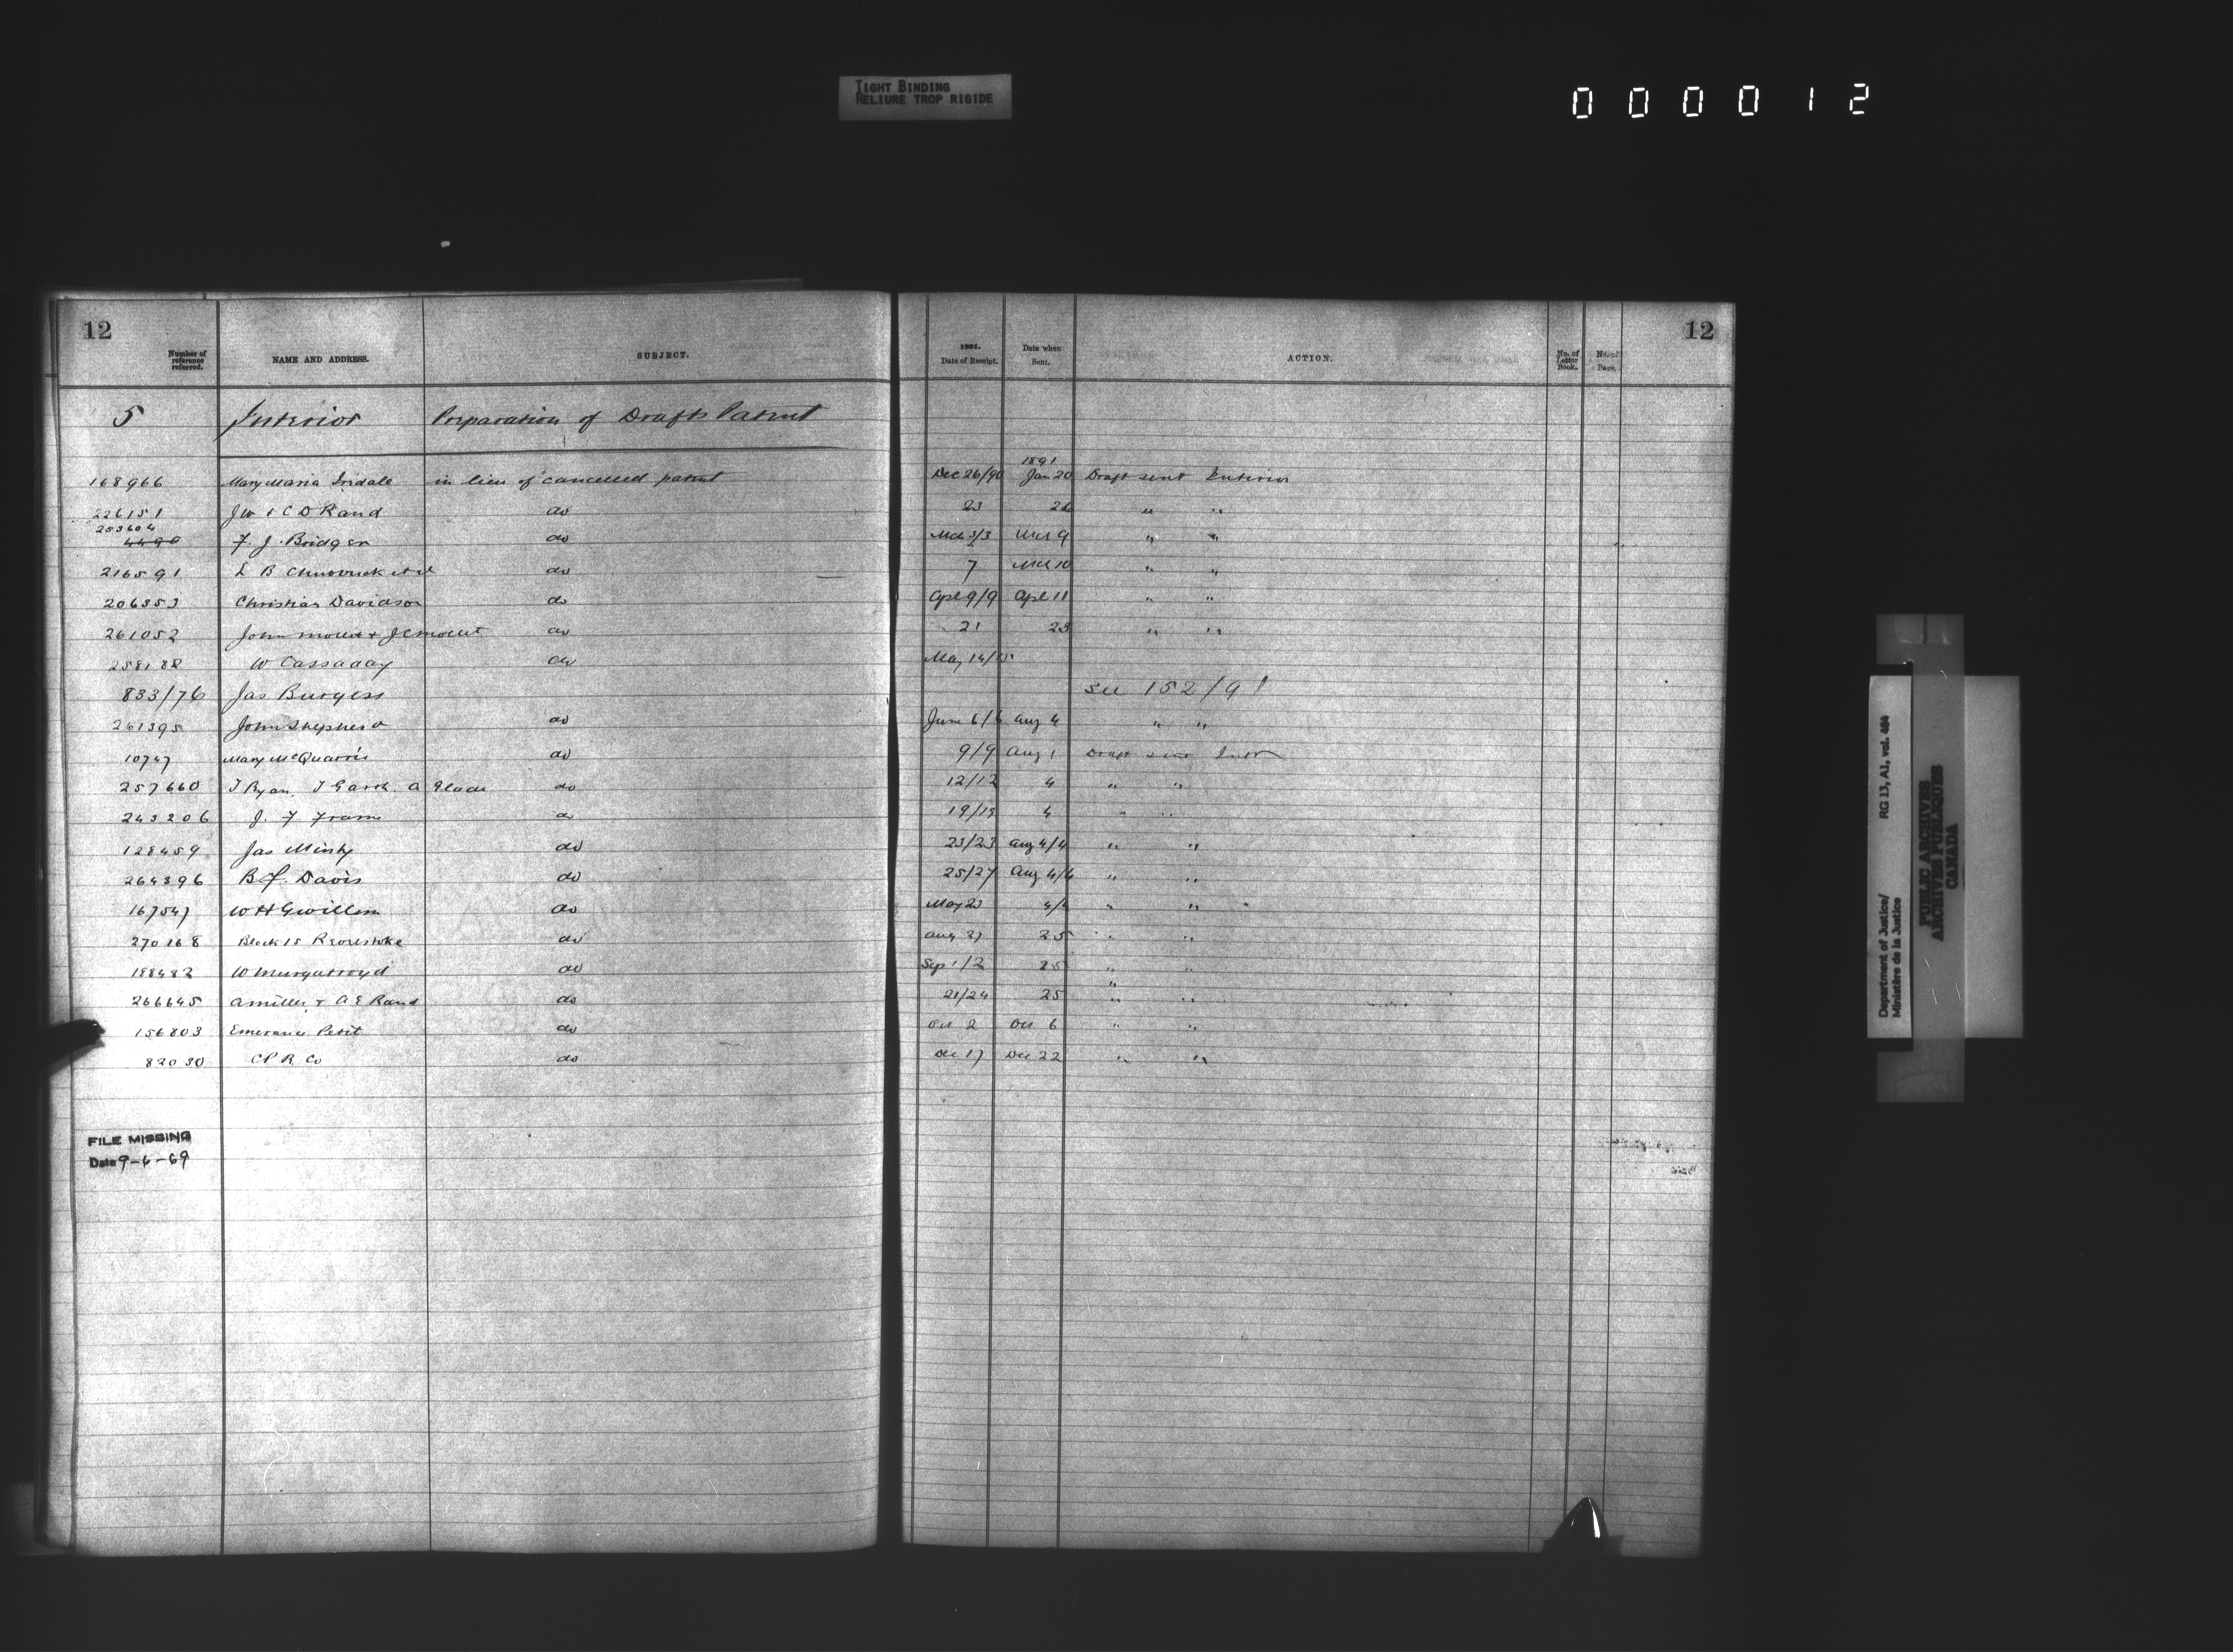 TIGHT BINDING
RELIURE TROP RIGIDE
0 0 0 0 1 2
12
Number of reference referred. NAME AND ADDRESS. SUBJECT.
1891. Date of Receipt. Date when Sent. ACTION. No. of Letter Book. No. of Page.
12
5 Interior Preparation of Draft Patent
1891
168966 Mary Maria Iredale in lieu of cancelled patent Dec 26/90 Jan 20 Draft sent Interior
226151 J W & C D Rand do 23 26 " "
253604
4490 F. J. Bridgen do Mch 3/3 Mch 9 " "
216591 L B do 7 Mch 10 " "
206353 Christian Davidson do Apl 9/9 Apl 11 " "
261052 John & do 21 23 " "
258188 W Cassaday do May 14/15
833/76 Jas Burgess see 152/91
261395 John Shepherd do June 6/6 Aug 4 " "
10747 Mary McQuarrie do 9/9 Aug 1 Draft sent Intr
257660 T Ryan, J A do 12/12 4 " "
243206 J. F. Frame do 19/19 4 " "
128459 Jas Minty do 23/23 Aug 4/4 " "
264396 B F. Davis do 25/27 Aug 4/4 " "
167547 W H Gwillim do May 23 4/4 " "
270168 Block 15 Revelstoke do Aug 27 25 " "
188482 W Murgatroyd do Sep 1/2 25 " "
266645 A Miller & A E Rand do 21/24 25 " "
156803 Emerance Petit do Oct 2 Oct 6 " "
82030 C P R Co do Dec 17 Dec 22 " "
FILE MISSING
Date 9-6-69
Department of Justice/ RG 13, A1, vol. 464
Ministère de la Justice
PUBLIC ARCHIVES
ARCHIVES PUBLIQUES
CANADA